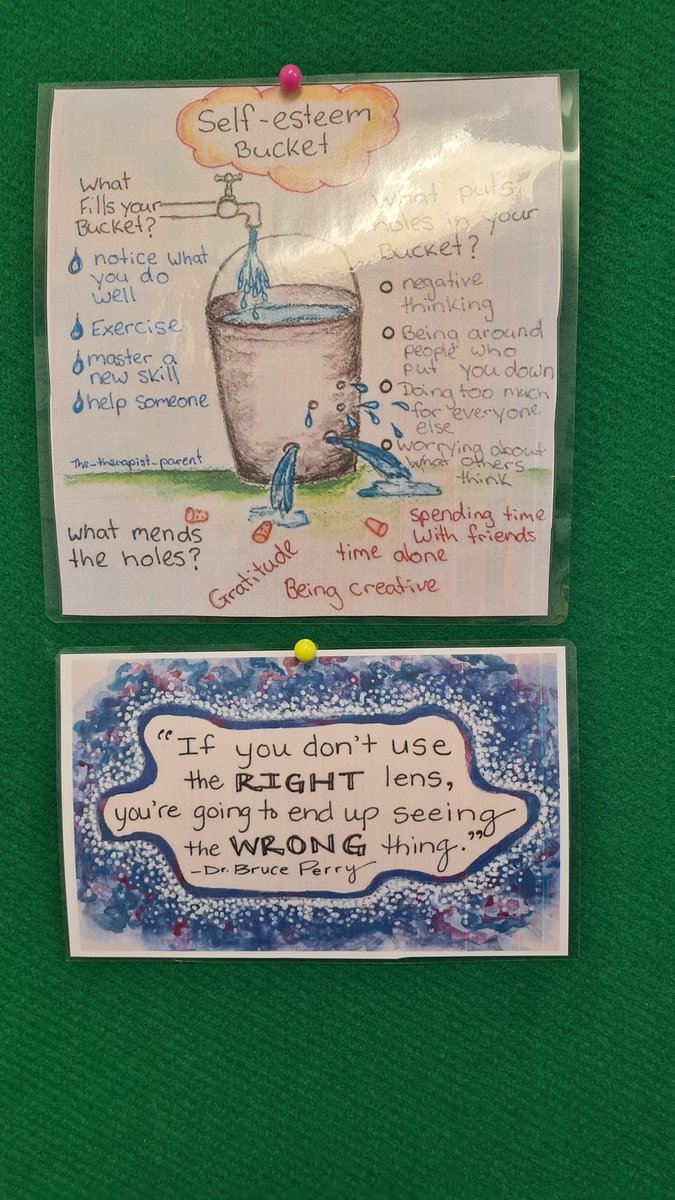 Self-esteem
Bucket
What
Fills your
Bucket?
notice what
you do
well
Exercise
master a
new skill
help someone
The-therapist-parent
What puts
holes in your
Bucket?
negative
thinking
Being around
people who
put you down
Doing too much
for everyone
else
worrying about
what others
think
what mends
the holes?
Gratitude
Being creative
time alone
spending time
with friends
"If you don't use
the RIGHT lens,
you're going to end up seeing
the WRONG thing."
-Dr. Bruce Perry